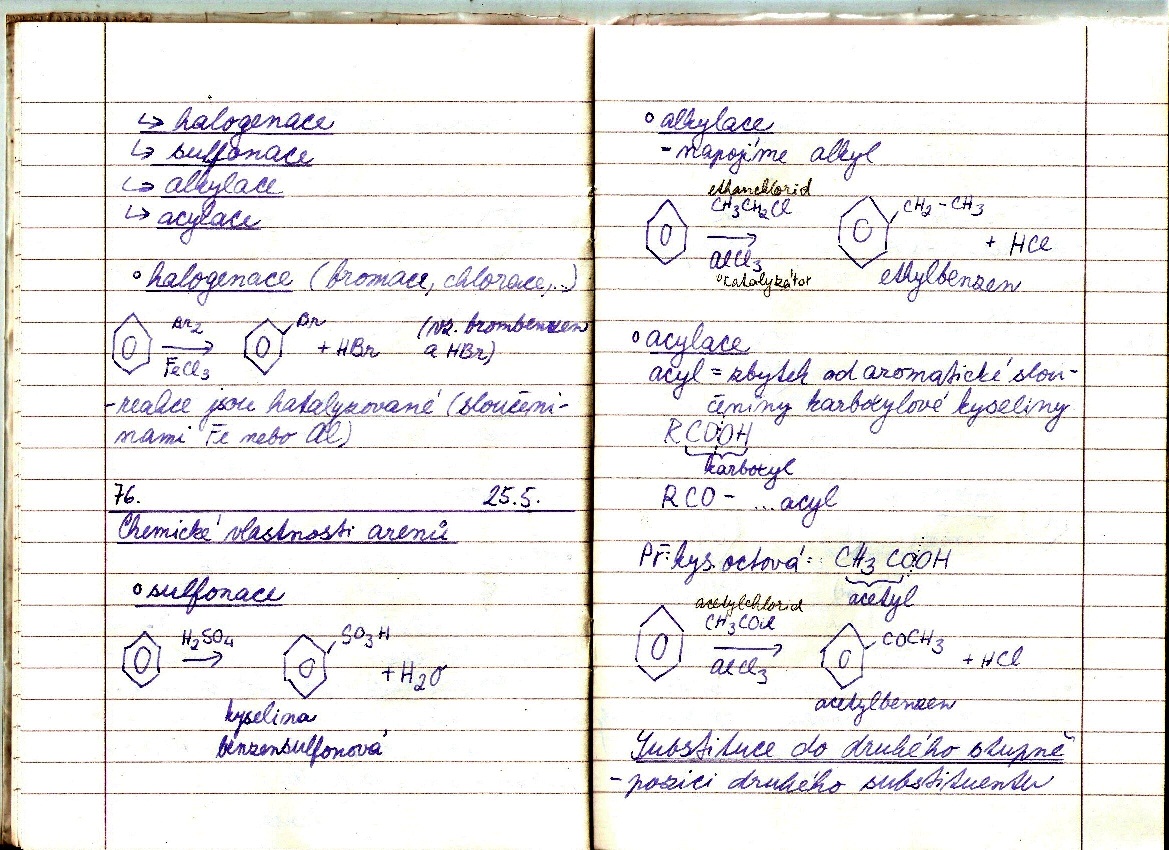 ↳ halogenace
↳ sulfonace
↳ alkylace
↳ acylace
° halogenace (bromace, chlorace,...)
Br₂
Br
FeCl₃
+ HBr
(vz. brombenzen
a HBr)
- reakce jsou katalyzované (sloučeni-
nami Fe nebo Al)
76. 25.5.
Chemické vlastnosti arenů
° sulfonace
H₂SO₄
SO₃H
+ H₂O
kyselina
benzensulfonová
° alkylace
- napojíme alkyl
ethanchlorid
CH₃CH₂Cl
AlCl₃
katalyzátor
CH₂-CH₃
+ HCl
ethylbenzen
° acylace
acyl = zbytek od aromatické slou-
čeniny karboxylové kyseliny
RCOOH
karboxyl
RCO- ...acyl
Př: kys. octová: CH₃COOH
acetyl
acetylchlorid
CH₃COCl
AlCl₃
COCH₃
+ HCl
acetylbenzen
Substituce do druhého stupně
- pozici druhého substituentu